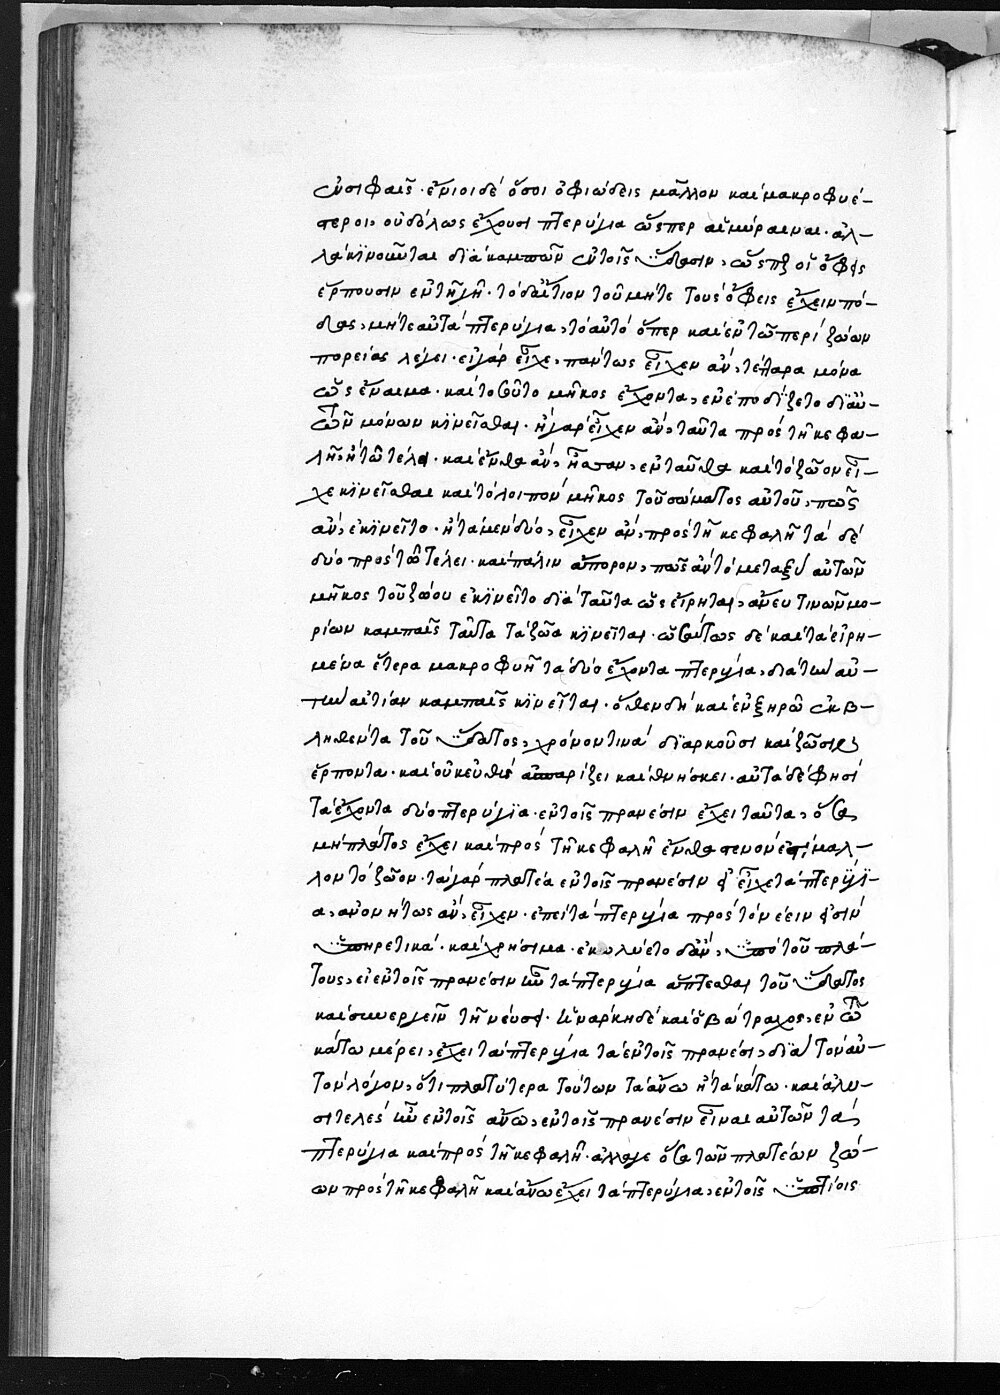 ἐν σιφαῖς· ἔνιοι δὲ ὅσοι ὀφιώδεις μᾶλλον καὶ μακροφυέ-
στεροι, οὐδόλως ἔχουσι πτερύγια ὥσπερ αἱ μύραιναι· ἀλ-
λὰ κινοῦνται διὰ καμπῶν ἐν τοῖς ὕδασιν, ὥσπερ οἱ ὄφεις
ἕρπουσιν ἐν τῇ γῇ· τὸ δ' αἴτιον τοῦ μήτε τοὺς ὄφεις ἔχειν πό-
δας, μήτε αὐτὰ πτερύγια, τὸ αὐτὸ ὅπερ καὶ ἐν τῷ περὶ ζώων
πορείας λέγει· εἰ γὰρ εἶχε, πάντως εἶχεν ἂν, τέτταρα μόνα
ὡς ἔναιμα· καὶ τοσοῦτο μῆκος ἔχοντα, ἐνεποδίζετο δι' αὐ-
τῶν μόνων κινεῖσθαι· ἢ γὰρ εἶχεν ἂν, ταῦτα πρὸς τῇ κεφα-
λῇ, ἢ τῷ τέλει· καὶ ἔνθα ἂν, ἦσαν, ἐνταῦθα καὶ τὸ ζῶον εἶ-
χε κινεῖσθαι καὶ τὸ λοιπὸν μῆκος τοῦ σώματος αὐτοῦ, πῶς
ἂν, ἐκινεῖτο· ἢ τὰ μὲν δύο, εἶχεν ἂν, πρὸς τῇ κεφαλῇ τὰ δὲ
δύο πρὸς τῷ τέλει· καὶ πάλιν ἄπορον, πῶς ἂν τὸ μεταξὺ αὐτῶν
μῆκος τοῦ ζώου ἐκινεῖτο διὰ ταῦτα ὡς εἴρηται, ἄνευ τινῶν μο-
ρίων καμπαῖς ταῦτα τὰ ζῶα κινεῖται· ὡσαύτως δὲ καὶ τὰ εἰρη-
μένα ἕτερα μακροφυῆ τὰ δύο ἔχοντα πτερύγια, διὰ τὴν αὐ-
τὴν αἰτίαν καμπαῖς κινεῖται· ὅθεν δὴ καὶ ἐν ξηρῷ ἐκβ-
ληθέντα τοῦ ὕδατος, χρόνον τινὰ διαρκοῦσι καὶ ζῶσιν
ἕρποντα· καὶ οὐκ εὐθὺς ἀσπαρίζει καὶ θνήσκει· αὐτὰ δέ φησί
τὰ ἔχοντα δύο πτερύγια· ἐν τοῖς πρανέσιν ἔχει ταῦτα, ὅσα
μὴ πλάτος ἔχει καὶ πρὸς τῇ κεφαλῇ ἔνθα στενόν ἐστι μᾶλ-
λον τὸ ζῶον· τὰ γὰρ πλατέα ἐν τοῖς πρανέσιν εἰ εἶχε τὰ πτερύγι-
α, ἀνονήτως ἂν, εἶχεν· ἐπεὶ τὰ πτερύγια πρὸς τὸ νέειν εἰσὶν
ὑπηρετικὰ· καὶ χρήσιμα· ἐκωλύετο δ' ἂν, ὑπὸ τοῦ πλά-
τους, εἰ ἐν τοῖς πρανέσιν ἦν τὰ πτερύγια ἅπτεσθαι τοῦ ὕδατος
καὶ συνεργεῖν τῇ νεύσει· ἡ νάρκη δὲ καὶ ὁ βάτραχος, ἐν τῷ
κάτω μέρει, ἔχει τὰ πτερύγια τὰ ἐν τοῖς πρανέσι, διὰ τὸν αὐ-
τὸν λόγον, ὅτι πλατύτερα τούτων τὰ ἄνω ἢ τὰ κάτω· καὶ ἀλυ-
σιτελὲς ἦν ἐν τοῖς ἄνω, ἐν τοῖς πρανέσιν εἶναι αὐτῶν τὰ
πτερύγια καὶ πρὸς τῇ κεφαλῇ· ἀλλά γε ὅσα τῶν πλατέων ζώ-
ων πρὸς τῇ κεφαλῇ καὶ ἄνω ἔχει τὰ πτερύγια, ἐν τοῖς ὑπτίοις